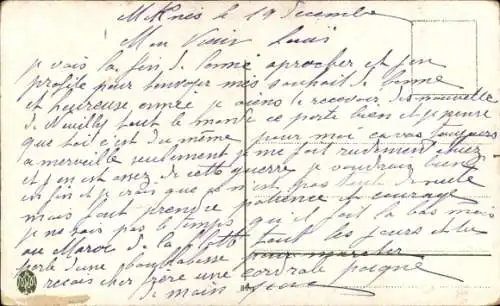 Meknès le 19 Decembre
Mon Vieux Louis
je vois la fin de l'année aprocher et j'en
profite pour t'envoyer mes souhait de bonne
et heureuse année je viens de recevoir des nouvelle
de Neuilly tout le monde ce porte bien et je pense
que toi c'est du même pour moi ca va toujours
a merveille seulement je me fait rudement chier
et j'en ai assez de cette guerre je voudrais bien
la fin et je crois que je n'est pas tout de suite
mais faut prendre patience et courage
je ne sais pas le temps qu'il fait la bas mais
au Maroc de la flotte tout les jours et la
perte d'une pour marcher
recois cher frère une cordiale poigné
de main